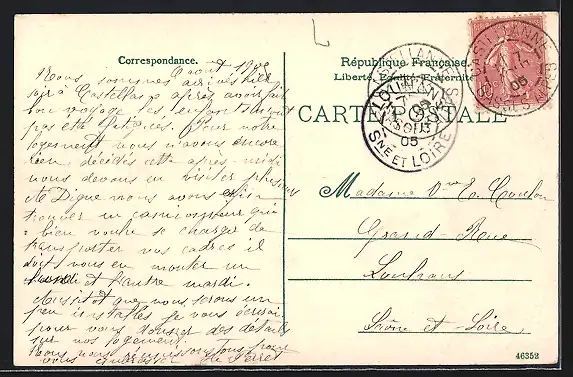 Correspondance.
6 août 1905
Nous sommes arrivés hier
soir à Castellane après avoir fait
bon voyage les enfants n'ont
pas été fatigués. Pour notre
logement nous n'avons encore
rien décidé cette après-midi
nous devons en visiter plusieurs
A Digne nous avons
trouver un camionneur qui
bien voulu se charger de
transporter vos cadres il
doit vous en monter un
lundi et l'autre mardi.
Aussitôt que nous serons un
peu installés je vous écrirai
pour vous donner des détails
sur nos logement.
Nous nous réunissons tous pour
vous embrasser
République Française
Liberté, Egalité, Fraternité
CARTE POSTALE
CASTELLANNE
05
LOUHANS
05
SNE ET LOIRE
CASTELLANNE
05
Madame Vve E. Coulon
Grand-Rue
Louhans
Saône et-Loire
46352